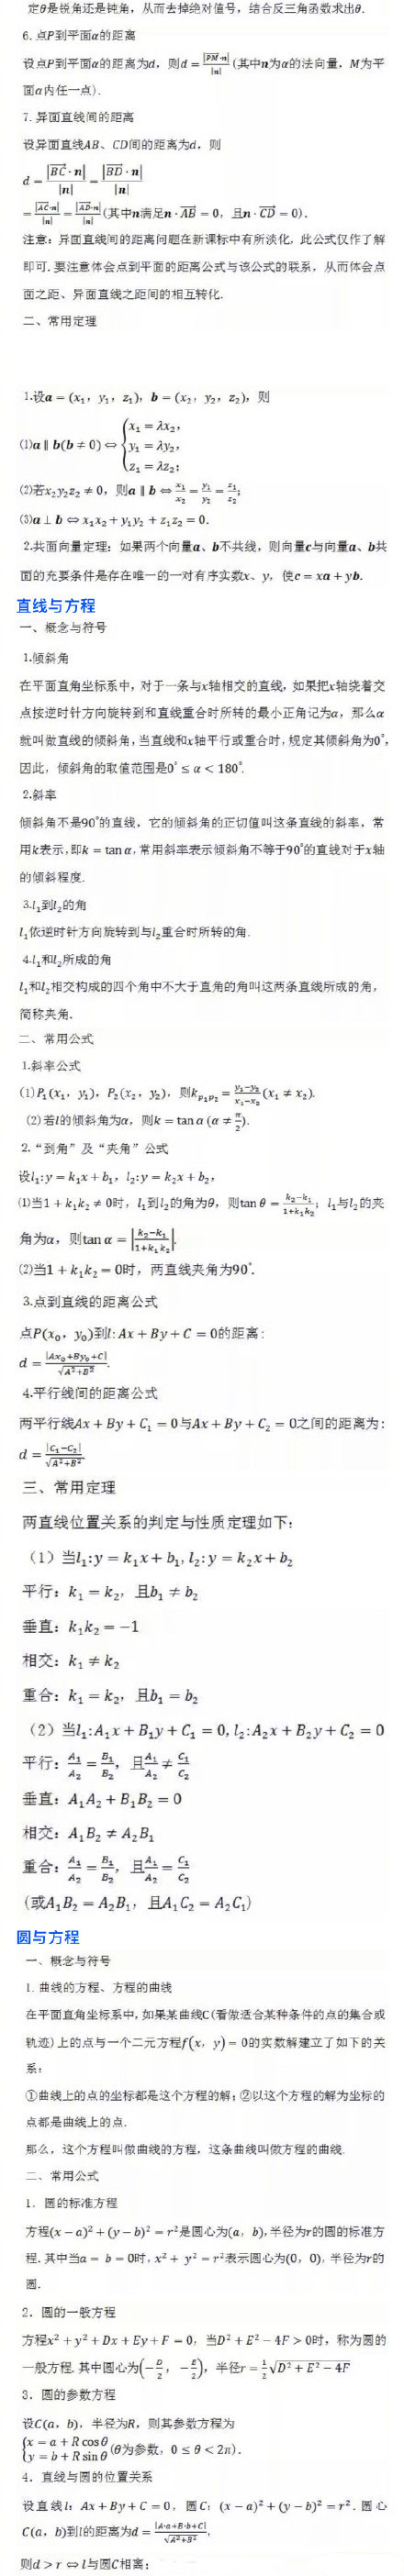 定θ是锐角还是钝角，从而去掉绝对值号，结合反三角函数求出θ.
6. 点P到平面α的距离
设点P到平面α的距离为d，则d = |PM·n|/|n| (其中n为α的法向量，M为平
面α内任一点).
7. 异面直线间的距离
设异面直线AB、CD间的距离为d，则
d = |BC·n|/|n| = |BD·n|/|n|
= |AC·n|/|n| = |AD·n|/|n| (其中n满足n·AB = 0，且n·CD = 0).
注意：异面直线间的距离问题在新课标中有所淡化，此公式仅作了解
即可.要注意体会点到平面的距离公式与该公式的联系，从而体会点
面之距、异面直线之距间的相互转化.
二、常用定理
1.设a = (x₁，y₁，z₁)，b = (x₂，y₂，z₂)，则
⑴a ∥ b(b ≠ 0) ⇔ {x₁ = λx₂，
y₁ = λy₂，
z₁ = λz₂；
⑵若x₂y₂z₂ ≠ 0，则a ∥ b ⇔ x₁/x₂ = y₁/y₂ = z₁/z₂；
⑶a ⊥ b ⇔ x₁x₂ + y₁y₂ + z₁z₂ = 0.
2.共面向量定理：如果两个向量a、b不共线，则向量c与向量a、b共
面的充要条件是存在唯一的一对有序实数x、y，使c = xa + yb.
直线与方程
一、概念与符号
1.倾斜角
在平面直角坐标系中，对于一条与x轴相交的直线，如果把x轴绕着交
点按逆时针方向旋转到和直线重合时所转的最小正角记为α，那么α
就叫做直线的倾斜角，当直线和x轴平行或重合时，规定其倾斜角为0°，
因此，倾斜角的取值范围是0° ≤ α < 180°.
2.斜率
倾斜角不是90°的直线，它的倾斜角的正切值叫这条直线的斜率，常
用k表示，即k = tan α，常用斜率表示倾斜角不等于90°的直线对于x轴
的倾斜程度.
3.l₁到l₂的角
l₁依逆时针方向旋转到与l₂重合时所转的角.
4.l₁和l₂所成的角
l₁和l₂相交构成的四个角中不大于直角的角叫这两条直线所成的角，
简称夹角.
二、常用公式
1.斜率公式
(1)P₁(x₁，y₁)，P₂(x₂，y₂)，则k_{P₁P₂} = (y₁−y₂)/(x₁−x₂) (x₁ ≠ x₂).
(2)若l的倾斜角为α，则k = tan α (α ≠ π/2).
2.“到角”及“夹角”公式
设l₁: y = k₁x + b₁，l₂: y = k₂x + b₂，
⑴当1 + k₁k₂ ≠ 0时，l₁到l₂的角为θ，则tan θ = (k₂−k₁)/(1+k₁k₂)；l₁与l₂的夹
角为α，则tan α = |(k₂−k₁)/(1+k₁k₂)|.
⑵当1 + k₁k₂ = 0时，两直线夹角为90°.
3.点到直线的距离公式
点P(x₀，y₀)到l: Ax + By + C = 0的距离:
d = |Ax₀+By₀+C|/√(A²+B²).
4.平行线间的距离公式
两平行线Ax + By + C₁ = 0与Ax + By + C₂ = 0之间的距离为:
d = |C₁−C₂|/√(A²+B²)
三、常用定理
两直线位置关系的判定与性质定理如下：
（1）当l₁: y = k₁x + b₁, l₂: y = k₂x + b₂
平行：k₁ = k₂，且b₁ ≠ b₂
垂直：k₁k₂ = −1
相交：k₁ ≠ k₂
重合：k₁ = k₂，且b₁ = b₂
（2）当l₁: A₁x + B₁y + C₁ = 0, l₂: A₂x + B₂y + C₂ = 0
平行：A₁/A₂ = B₁/B₂，且A₁/A₂ ≠ C₁/C₂
垂直：A₁A₂ + B₁B₂ = 0
相交：A₁B₂ ≠ A₂B₁
重合：A₁/A₂ = B₁/B₂，且A₁/A₂ = C₁/C₂
(或A₁B₂ = A₂B₁，且A₁C₂ = A₂C₁)
圆与方程
一、概念与符号
1. 曲线的方程、方程的曲线
在平面直角坐标系中，如果某曲线C(看做适合某种条件的点的集合或
轨迹)上的点与一个二元方程f(x，y) = 0的实数解建立了如下的关
系：
①曲线上的点的坐标都是这个方程的解；②以这个方程的解为坐标的
点都是曲线上的点.
那么，这个方程叫做曲线的方程，这条曲线叫做方程的曲线.
二、常用公式
1．圆的标准方程
方程(x − a)² + (y − b)² = r²是圆心为(a，b)，半径为r的圆的标准方
程.其中当a = b = 0时，x² + y² = r²表示圆心为(0，0)，半径为r的
圆.
2．圆的一般方程
方程x² + y² + Dx + Ey + F = 0，当D² + E² − 4F > 0时，称为圆的
一般方程.其中圆心为(−D/2，−E/2)，半径r = 1/2√(D² + E² − 4F)
3．圆的参数方程
设C(a，b)，半径为R，则其参数方程为
{x = a + R cos θ
y = b + R sin θ (θ为参数，0 ≤ θ < 2π).
4．直线与圆的位置关系
设直线l: Ax + By + C = 0，圆C: (x − a)² + (y − b)² = r². 圆心
C(a，b)到l的距离为d = |A·a+B·b+C|/√(A²+B²)，
则d > r ⇔ l与圆C相离；